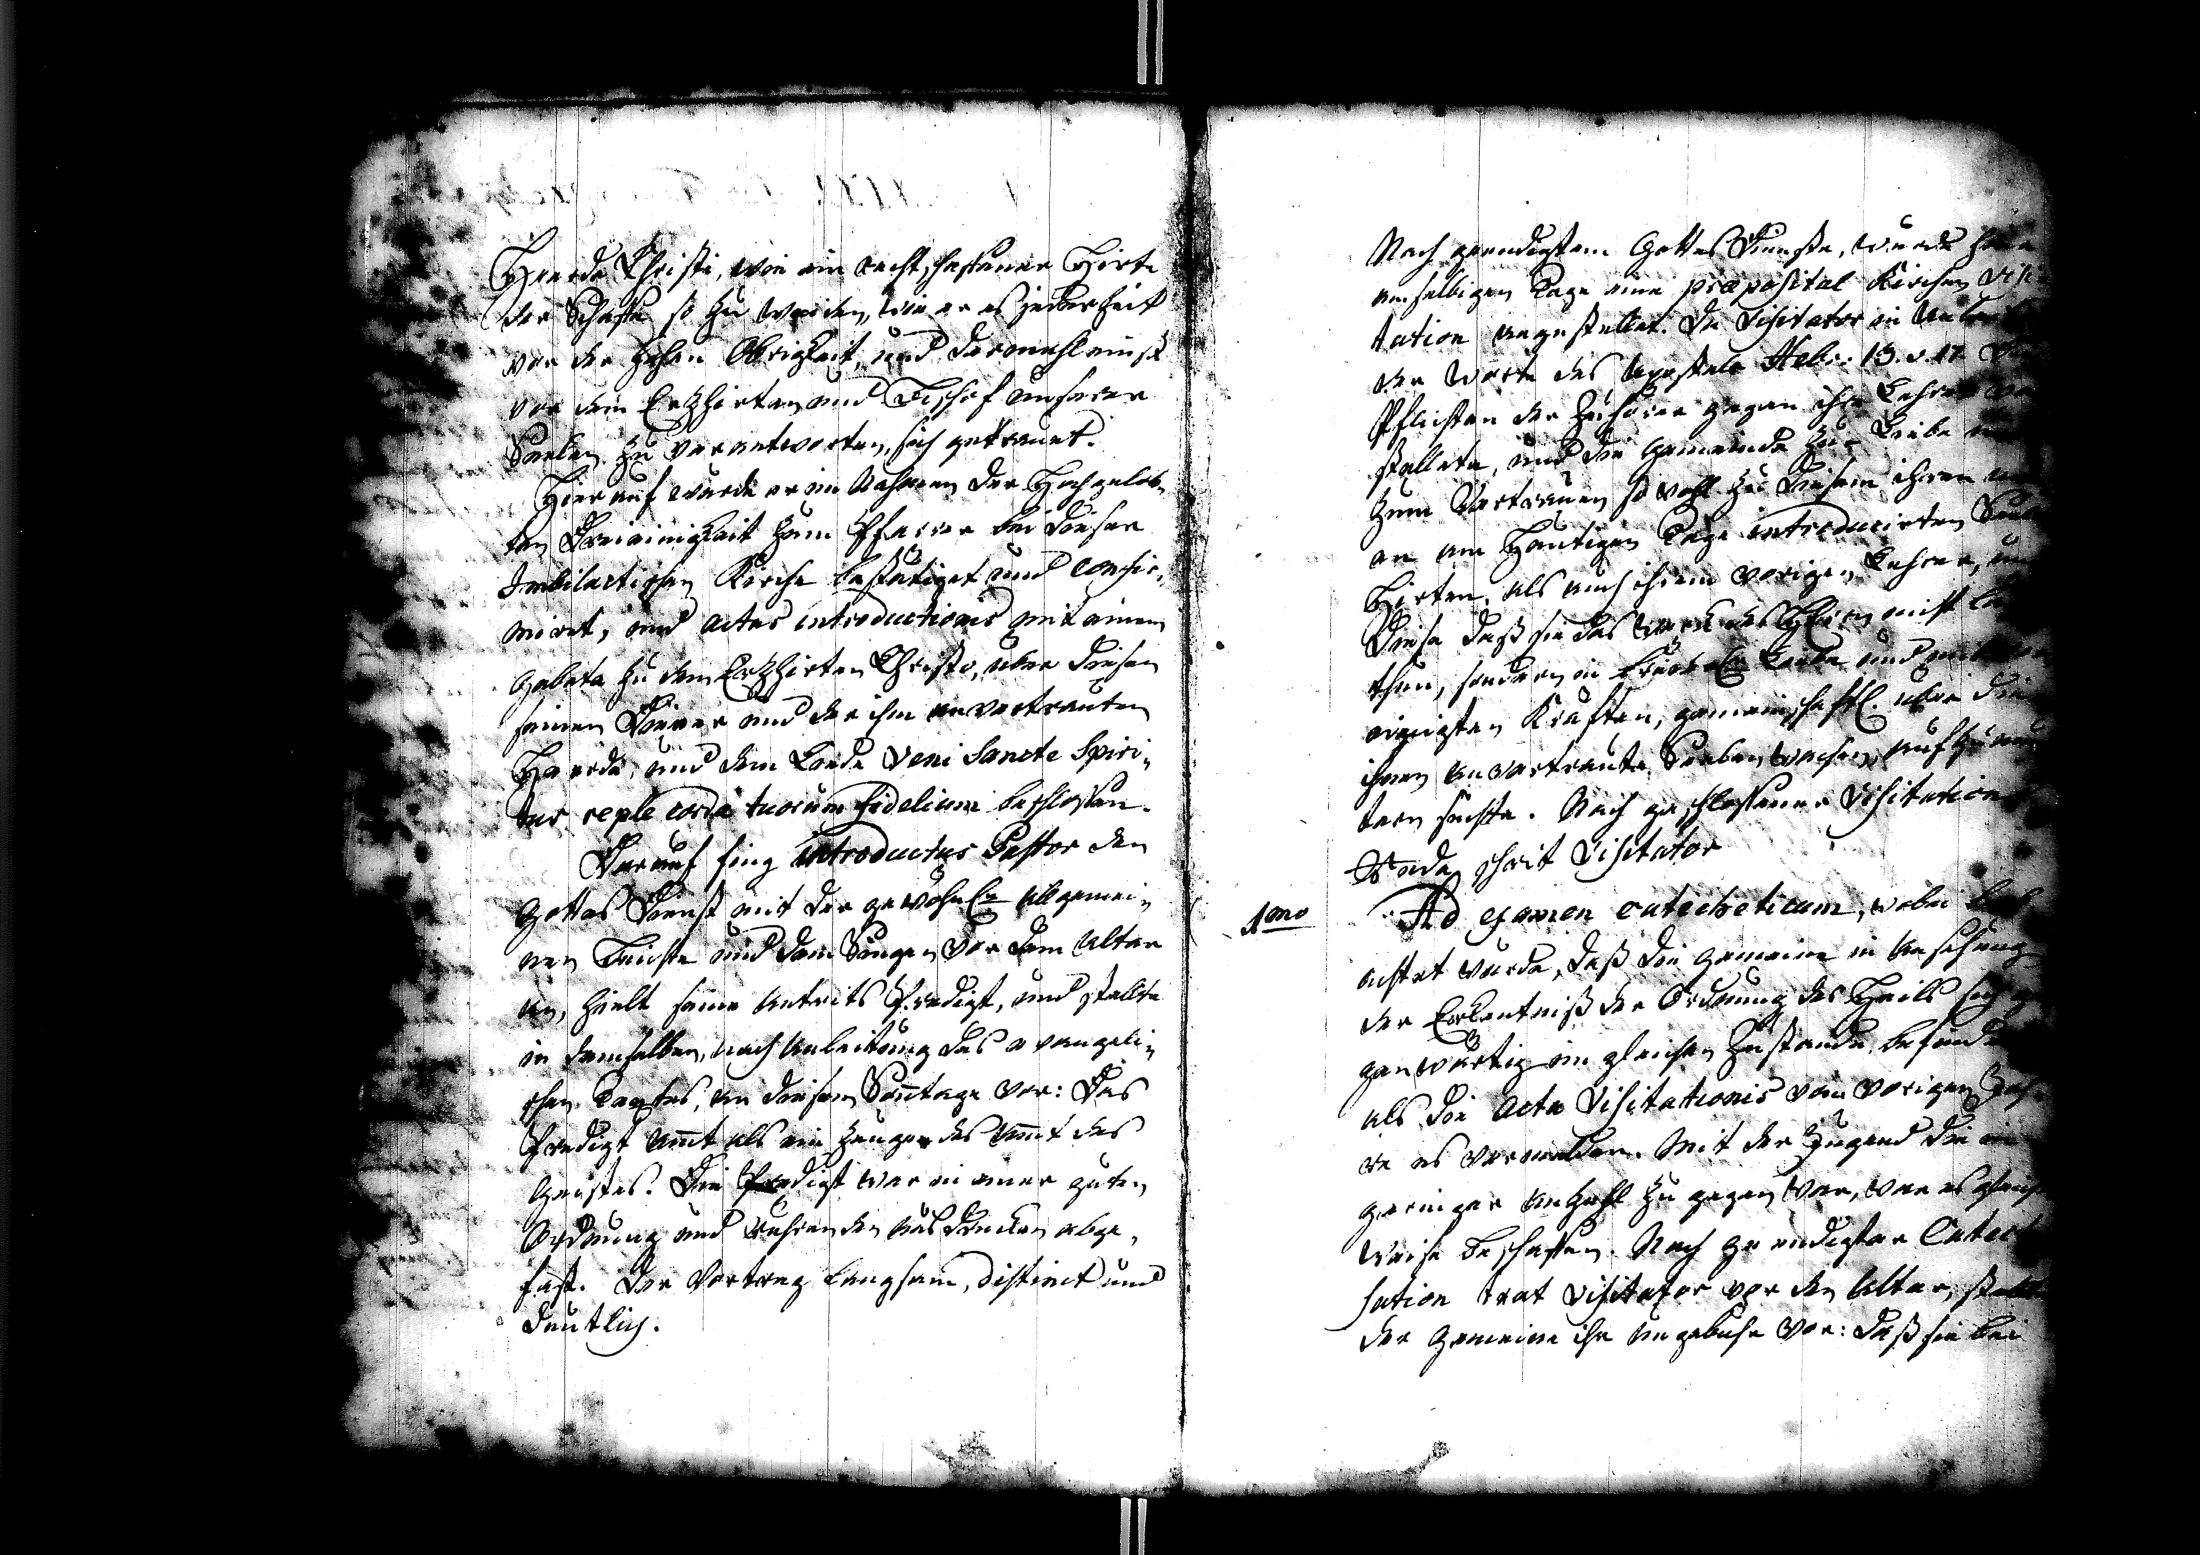 Heerde Christi, wie ein rechtschaffener Hirte
der Schaffe so zu weiden, wie er es jederzeit
vor der Hohen Obrigkeit, und dermahleinst
vor dem Ertzhirten und Bischof unserer
Seelen zu verantworten, sich getrauet.
Hierauf wurde er im Nahmen der Hochgelob„
ten Dreieinigkeit zum Pfarrer bei dieser
Kirche bestätiget und confir„
miret, und actus introductionis mit einem
Gebete zu dem Ertzhirten Christo, über diesen
seinen Diener und der ihm anvertrauten
Heerde, und dem Liede Veni Sancte Spiri„
tus reple corda tuorum fidelium beschlossen.
Darauf fing introductus Pastor den
Gottes Dienst mit der gewöhnl. Allgemei„
nen Beichte und dem Singen vor dem Altar
an, hielt seine Antrits Predigt, und stellte
in demselben, nach Anleitung des evangeli„
schen Textes, an diesem Sontage vor: Das
Predigt Amt als ein Zeuge des Amt des
Geistes. Die Predigt war in einer guten
Ordnung und rührenden Ausdrücken abge„
fast. Der Vortrag langsam, distinct und
deutlich.
Nach geendigtem Gottes Dienste, wurde
am selbigen Tage eine præposital Kirchen Visi
tation angestellet. Da Visitator in
der Worte des Apostels Hebr: 13. v. 17. die
Pflichten der Zuhörer gegen ihre Lehrer vor
stellete, und die Gemeinde zur Liebe und
zum Vertrauen so wohl zu diesem ihren
an am heutigen Tage introducirten Seel
Hirten, als auch ihrem vorigen Lehrer, und
diese daß sie das Werk des Herrn nicht
thun, sondern in Liebe und mit
einigten Kräften, gemeinschaftl. über die
ihnen anvertraute Seelen wachen, aufzumun
tern suchte. Nach geschlossener Visitations
Rede schrit Visitator
1mo Ad examen catecheticum, wobei beob
achtet wurde, daß die Gemeine in Ansehung
der Erkentniß der Ordnung des Heils sich ge
genwärtig im gleichen Zustande befunde
als die Acta Visitationis vom vorigen Jah
re es vermelden. Mit der Jugend die in
geringer Anzahl zu gegen war, war es gleicher
Weise beschaffen. Nach geendigter Catechi
sation trat Visitator vor den Altar, stellte
der Gemeine ihr Ungebühr vor: daß sie bei